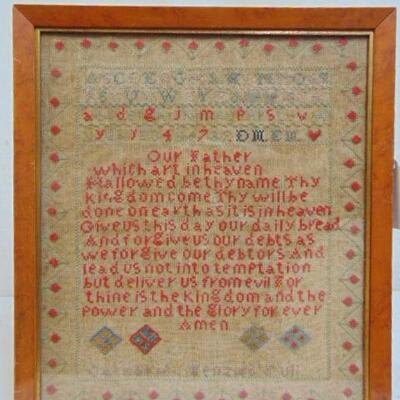 A C E G I K M O Q
S U W Y
a d g j m p s v
y 1 4 7 DM EM
Our Father
which art in heaven
Hallowed be thy name Thy
kingdom come Thy will be
done on earth as it is in heaven
Give us this day our daily bread
And forgive us our debts as
we forgive our debtors And
lead us not into temptation
but deliver us from evil For
thine is the kingdom and the
power and the glory for ever
Amen
Menzies